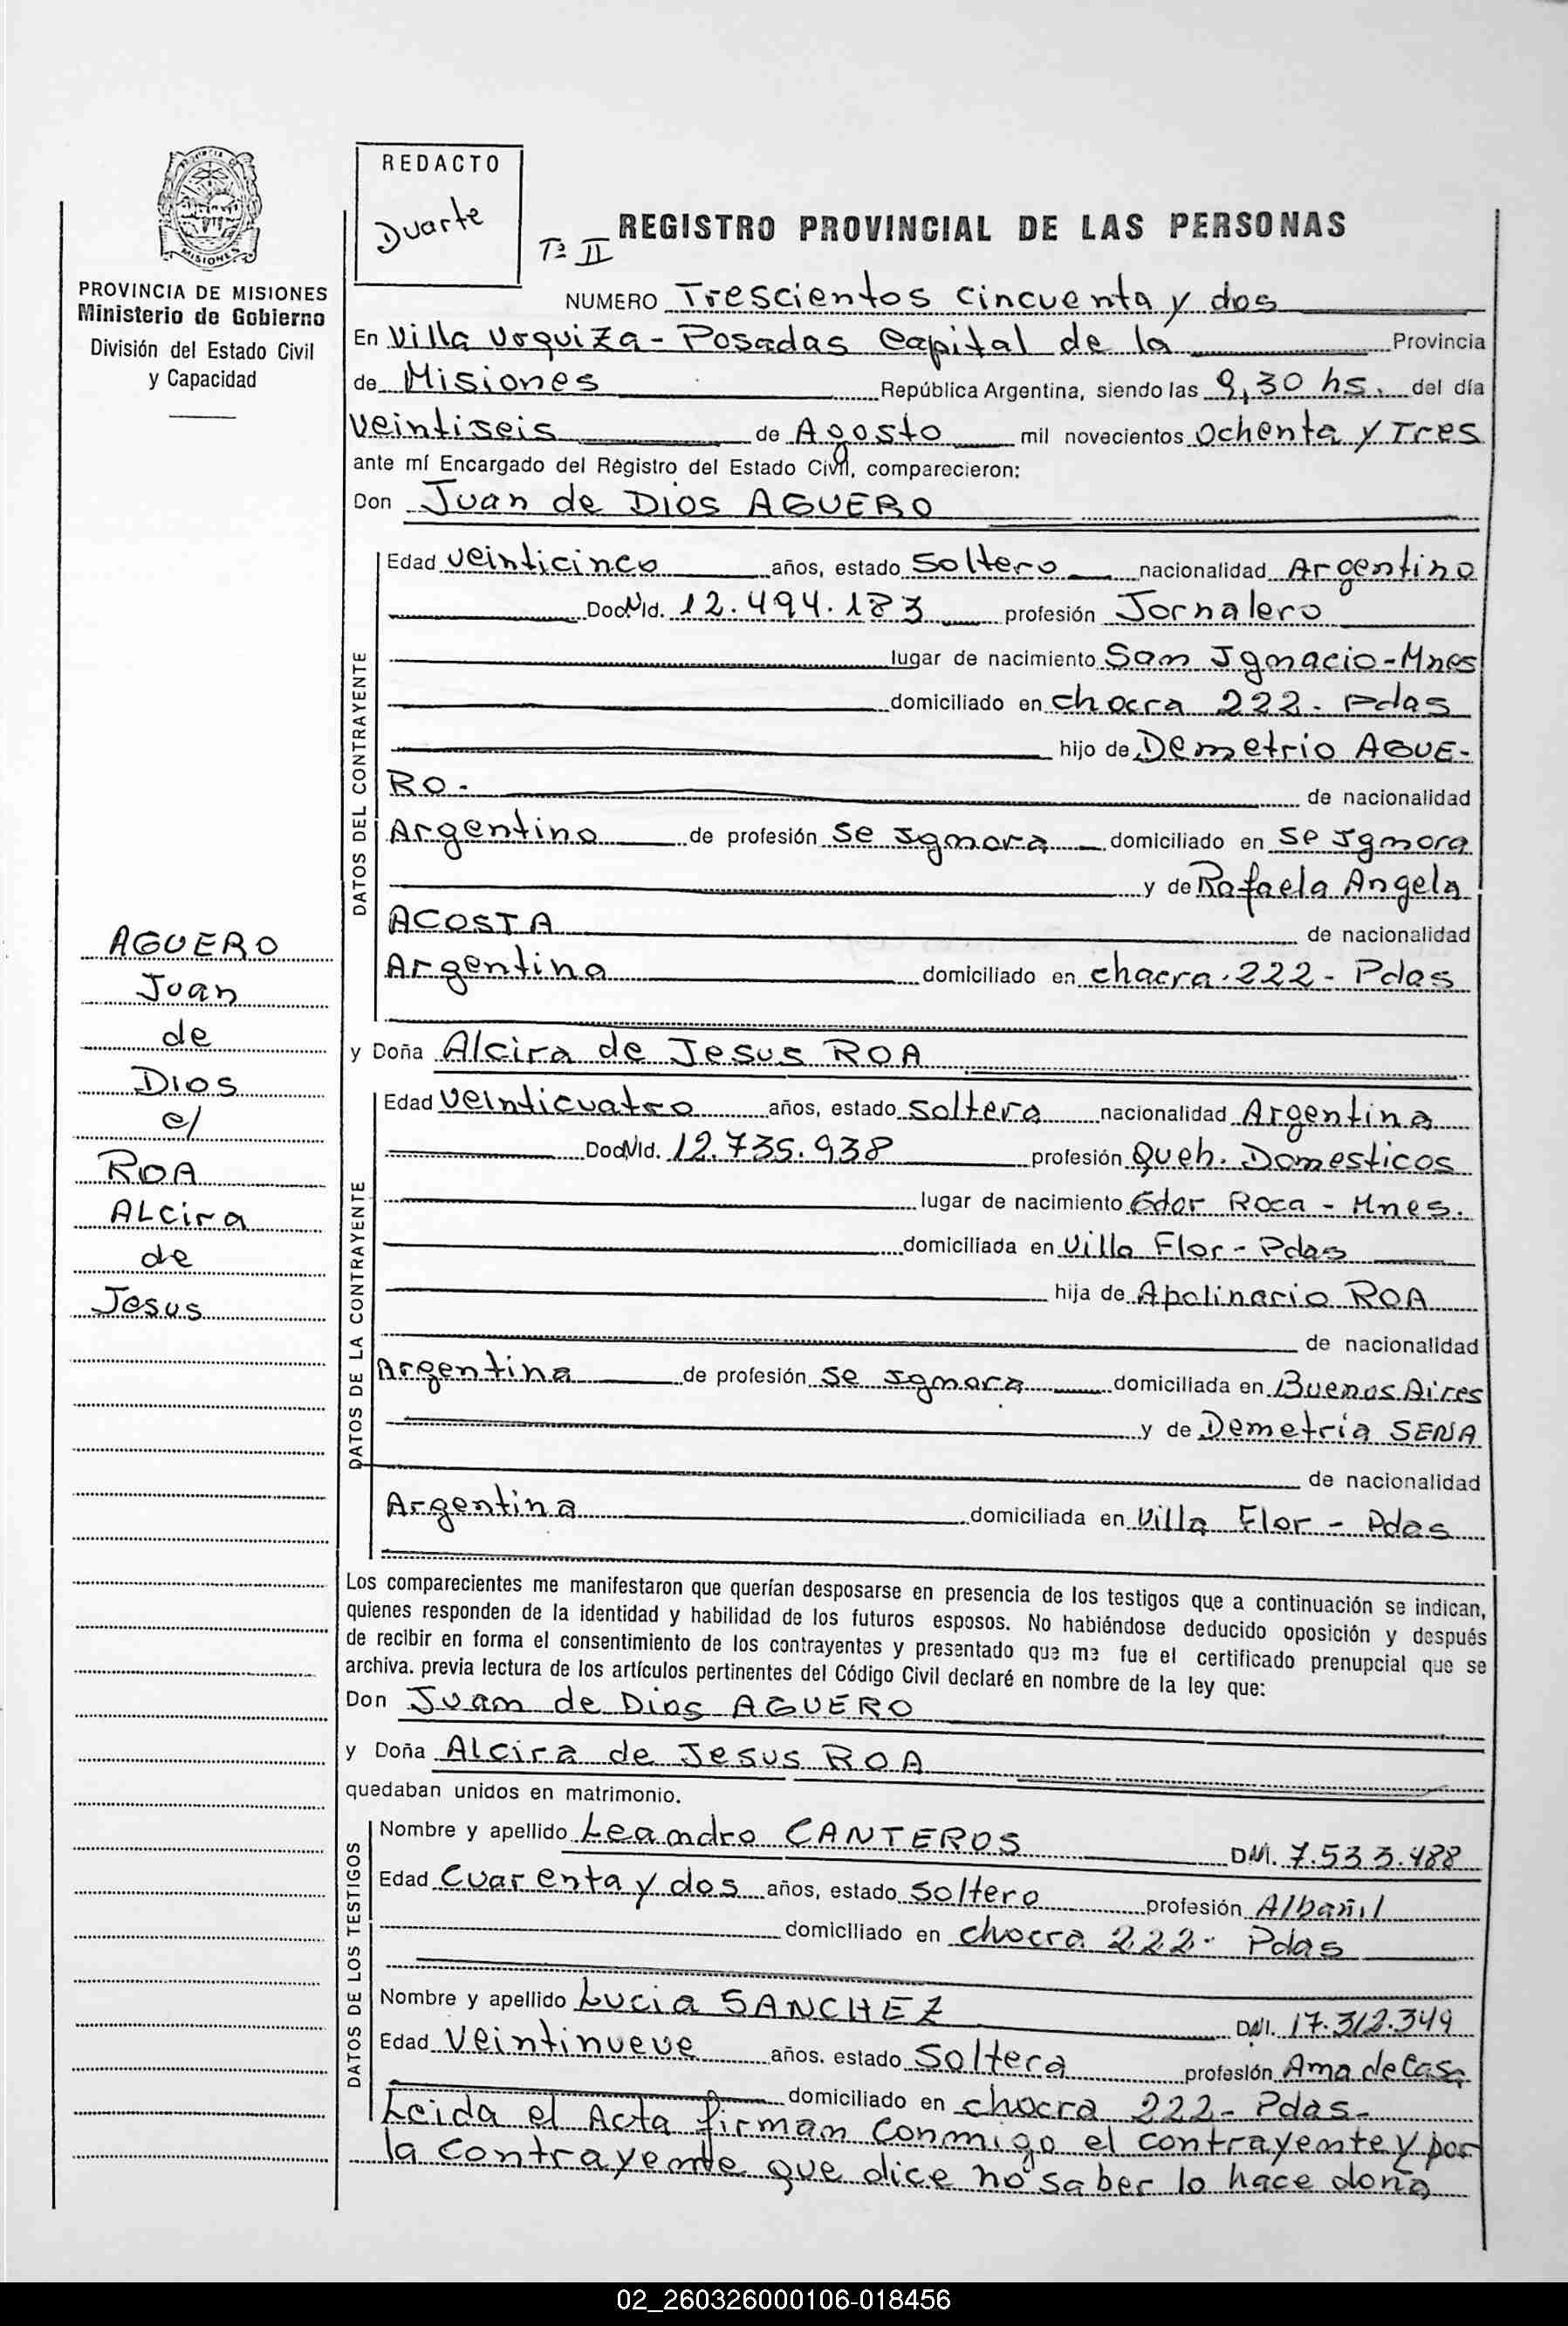 REDACTO
Duarte
PROVINCIA DE MISIONES
MISIONES
PROVINCIA DE MISIONES
Ministerio de Gobierno
División del Estado Civil
y Capacidad
Tº II
REGISTRO PROVINCIAL DE LAS PERSONAS
NUMERO Trescientos cincuenta y dos
En Villa Urquiza - Posadas Capital de la Provincia
de Misiones República Argentina, siendo las 9,30 hs. del día
veintiseis de Agosto mil novecientos ochenta y Tres
ante mí Encargado del Registro del Estado Civil, comparecieron:
Don Juan de Dios AGUERO
DATOS DEL CONTRAYENTE
Edad veinticinco años, estado Soltero nacionalidad Argentino
Doc. N Id. 12.494.183 profesión Jornalero
lugar de nacimiento San Ignacio - Mnes
domiciliado en chacra 222 - Pdas
hijo de Demetrio AGUE-
RO - de nacionalidad
Argentino de profesión se ignora domiciliado en se ignora
y de Rafaela Angela
ACOSTA de nacionalidad
Argentina domiciliado en chacra - 222 - Pdas
AGUERO
Juan
de
Dios
c/
ROA
ALcira
de
Jesus
y Doña Alcira de Jesus ROA
DATOS DE LA CONTRAYENTE
Edad veinticuatro años, estado soltera nacionalidad Argentina
Doc. N Id. 12.735.938 profesión Queh. Domesticos
lugar de nacimiento Gdor Roca - Mnes.
domiciliada en Villa Flor - Pdas
hija de Apolinario ROA
de nacionalidad
Argentina de profesión se ignora domiciliada en Buenos Aires
y de Demetria SENA
de nacionalidad
Argentina domiciliada en Villa Flor - Pdas
Los comparecientes me manifestaron que querían desposarse en presencia de los testigos que a continuación se indican,
quienes responden de la identidad y habilidad de los futuros esposos. No habiéndose deducido oposición y después
de recibir en forma el consentimiento de los contrayentes y presentado que me fue el certificado prenupcial que se
archiva. previa lectura de los artículos pertinentes del Código Civil declaré en nombre de la ley que:
Don Juan de Dios AGUERO
y Doña ALcira de Jesus ROA
quedaban unidos en matrimonio.
DATOS DE LOS TESTIGOS
Nombre y apellido Leandro CANTEROS DNI. 7.533.488
Edad Cuarenta y dos años, estado Soltero profesión Albañil
domiciliado en chacra 222 - Pdas
Nombre y apellido Lucia SANCHEZ DNI. 17.312.349
Edad veintinueve años. estado Soltera profesión Ama de Casa
domiciliado en chacra 222 - Pdas -
Leida el Acta firman conmigo el contrayente y por
la contrayente que dice no saber lo hace doña
02_260326000106-018456